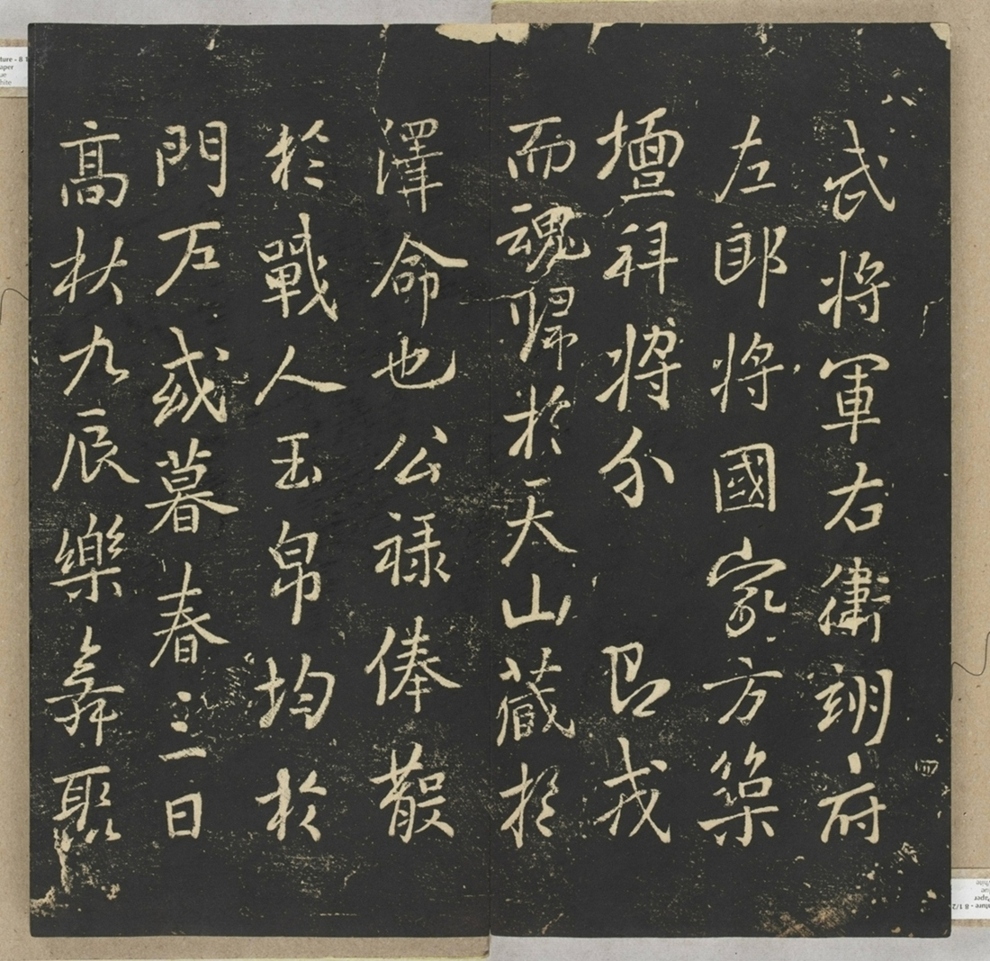 武將軍右衛翊府
左郎將國家方築
壇拜將分即戎
而魂歸於天山藏於
澤命也公祿俸散
於戰人玉帛均於
門或暮春三日
高秋九辰樂舞聚